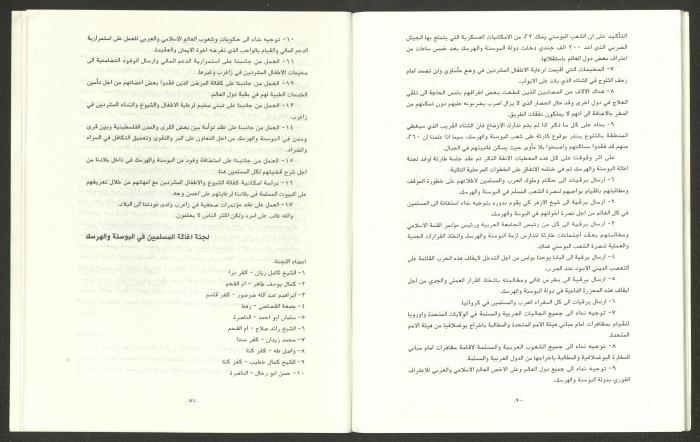 التأكيد على ان الشعب البوسني يملك ٢٪ من الامكانيات العسكرية التي يتمتع بها الجيش
الصربي الذي اعد ٢٠٠ الف جندي دخلت دولة البوسنة والهرسك بعد خمس ساعات من
اعتراف بعض دول العالم باستقلالها.
٧- المخيمات التي اقيمت لرعاية الاطفال المشردين في وضع مأساوي ولن تصمد امام
زحف الثلوج في الشتاء الذي بات على الابواب.
٨- هناك الآلاف من المصابين الذين قطعت بعض اطرافهم بامس الحاجة الى تلقي
العلاج في دول اخرى وقد حال الحصار الذي لا يزال الصرب يضربونه عليهم دون تمكنهم من
السفر بالاضافة الى انهم لا يملكون نفقات الطريق.
٩- بناء على كل ما ذكر اذا لم يتم تدارك الاوضاع فان الشتاء القريب الذي سيغطي
المنطقة بالثلوج ينذر بوقوع كارثة على شعب البوسنة والهرسك، سيما اذا علمنا ان ٦٠٪
منهم قد فقدوا مساكنهم واصبحوا بلا مأوى حيث يسكن غالبيتهم في الجبال.
على اثر وقوفنا على كل هذه المعطيات الانفة الذكر تم عقد جلسة طارئة لوفد لجنة
اغاثة البوسنة والهرسك تم في ختامه الاتفاق على الخطوات المرحلية التالية:
١- ارسال برقيات الى حكام وملوك العرب والمسلمين لاطلاعهم على خطورة الموقف
ومطالبتهم بالقيام بواجبهم لنصرة الشعب المسلم في البوسنة والهرسك.
٢- ارسال برقية الى شيخ الازهر كي يقوم بدوره بتوجيه نداء استغاثة الى المسلمين
في كل العالم من اجل نصرة اخوانهم في البوسنة والهرسك.
٣- ارسال برقية الى كل من رئيس الجامعة العربية ورئيس مؤتمر القمة الاسلامي
ومطالبتهم بعقد اجتماعات طارئة لتدارس ازمة البوسنة والهرسك واتخاذ القرارات الجدية
والعملية لنصرة الشعب البوسني هناك.
٤- ارسال برقية الى البابا يوحنا بولس من اجل التدخل لايقاف هذه الحرب القائمة على
التعصب الديني الاسود عند الصرب.
٥- ارسال برقية الى بطرس غالي ومطالبته باتخاذ القرار العملي والجدي من اجل
ايقاف هذه المجزرة الدامية في دولة البوسنة والهرسك.
٦- ارسال برقيات الى كل السفراء العرب والمسلمين في كرواتيا.
٧- توجيه نداء الى جميع الجاليات العربية والمسلمة في الولايات المتحدة واوروبا
للقيام بمظاهرات امام مباني هيئة الامم المتحدة والمطالبة باخراج يوغسلافيا من هيئة الامم
المتحدة.
٨- توجيه نداء الى جميع الشعوب العربية والمسلمة لاقامة مظاهرات امام مباني
السفارة اليوغسلافية والمطالبة باخراجها من الدول العربية والمسلمة.
٩- توجيه نداء الى جميع دول العالم وعلى الاخص العالم الاسلامي والعربي للاعتراف
الفوري بدولة البوسنة والهرسك.
-٧٠-
١٠- توجيه نداء الى حكومات وشعوب العالم الاسلامي والعربي للعمل على استمرارية
الدعم المالي والقيام بالواجب الذي تفرضه اخوة الايمان والعقيدة.
١١- العمل من جانبنا على استمرارية الدعم المالي وارسال الوفود التضامنية الى
مخيمات الاطفال المشردين في زاغرب وغيرها.
١٢- العمل من جانبنا على كفالة المرضى الذين فقدوا بعض اعضائهم من اجل تأمين
الخدمات الطبية لهم في بقية دول العالم.
١٣- العمل من جانبنا على تبني مخيم لرعاية الاطفال والشيوخ والنساء المشردين في
زاغرب.
١٤- العمل من جانبنا على عقد توأمة بين بعض القرى والمدن الفلسطينية وبين قرى
ومدن في البوسنة والهرسك من اجل التعاون على البر والتقوى وتعميق التكافل في السراء
والضراء.
١٥- العمل من جانبنا على استضافة وفود من البوسنة والهرسك في داخل بلادنا من
اجل شرح قضيتهم لكل المسلمين هنا.
١٦- دراسة امكانية كفالة الشيوخ والاطفال المشردين مع امهاتهم من خلال تعريفهم
على البيوت المسلمة في بلادنا لرعايتهم على احسن وجه.
١٧- العمل على عقد مؤتمرات صحفية في زاغرب ولدى عودتنا الى البلاد.
والله غالب على امره ولكن اكثر الناس لا يعلمون.
لجنة اغاثة المسلمين في البوسنة والهرسك
اعضاء اللجنة:
١- الشيخ كامل ريان - كفر برا
٢- كمال يوسف ظاهر - ام الفحم
٣- ابراهيم عبد الله صرصور - كفر قاسم
٤- جمعة القصاصي - رهط
٥- سلمان ابو احمد - الناصرة
٦- الشيخ رائد صلاح - ام الفحم
٧- محمد زيدان - كفر مندا
٨- واصل طه - كفر كنا
٩- الشيخ كمال خطيب - كفر كنا
١٠- حسن ابو رحال - الناصرة
-٧١-